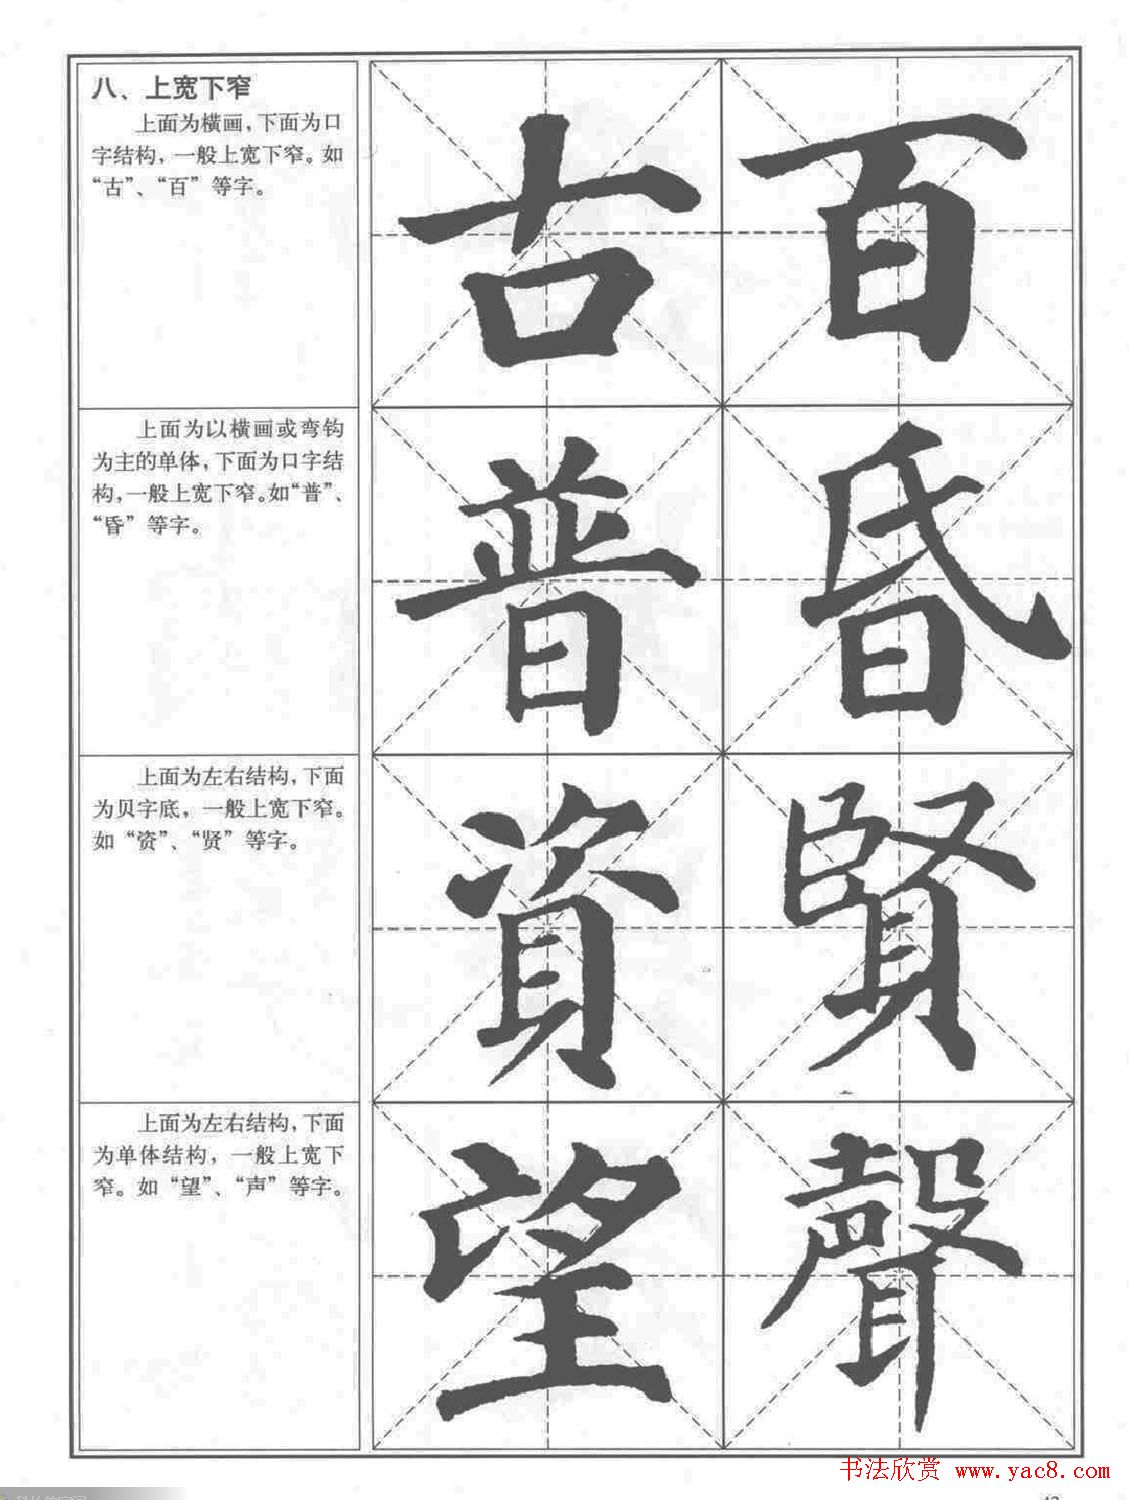 八、上宽下窄
上面为横画，下面为口
字结构，一般上宽下窄。如
“古”、“百”等字。
古百
上面为以横画或弯钩
为主的单体，下面为口字结
构，一般上宽下窄。如“普”、
“昏”等字。
普昏
上面为左右结构，下面
为贝字底，一般上宽下窄。
如“资”、“贤”等字。
資賢
上面为左右结构，下面
为单体结构，一般上宽下
窄。如“望”、“声”等字。
望聲
书法欣赏 www.yac8.com